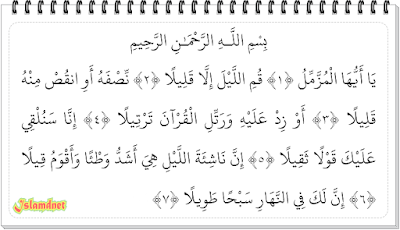 بِسْمِ اللَّـهِ الرَّحْمَـٰنِ الرَّحِيمِ
يَا أَيُّهَا الْمُزَّمِّلُ ﴿١﴾ قُمِ اللَّيْلَ إِلَّا قَلِيلًا ﴿٢﴾ نِّصْفَهُ أَوِ انقُصْ مِنْهُ
قَلِيلًا ﴿٣﴾ أَوْ زِدْ عَلَيْهِ وَرَتِّلِ الْقُرْآنَ تَرْتِيلًا ﴿٤﴾ إِنَّا سَنُلْقِي
عَلَيْكَ قَوْلًا ثَقِيلًا ﴿٥﴾ إِنَّ نَاشِئَةَ اللَّيْلِ هِيَ أَشَدُّ وَطْئًا وَأَقْوَمُ قِيلًا
﴿٦﴾ إِنَّ لَكَ فِي النَّهَارِ سَبْحًا طَوِيلًا ﴿٧﴾
Islamdnet